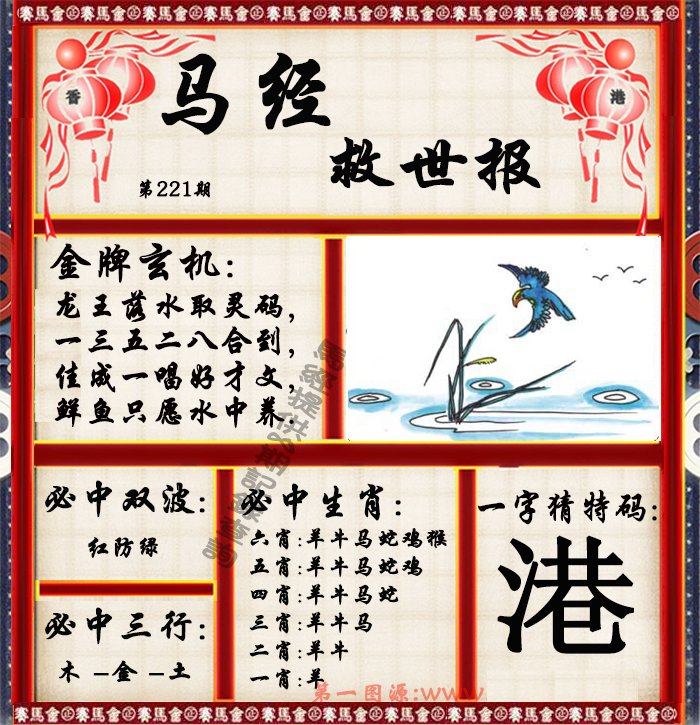 賽馬會 賽馬會 賽馬會 賽馬會 賽馬會 賽馬會 賽馬會 賽馬會 賽馬會
香
港
马经
救世报
第221期
金牌玄机:
龙王落水取灵码,
一三五二八合到,
佳成一唱好才文,
鲜鱼只愿水中养.
必中双波:
红防绿
必中三行:
木-金-土
必中生肖:
六肖:羊牛马蛇鸡猴
五肖:羊牛马蛇鸡
四肖:羊牛马蛇
三肖:羊牛马
二肖:羊牛
一肖:羊
一字猜特码:
港
第一图源:www